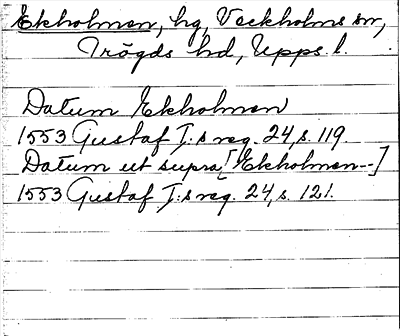 Ekholmen, hg, Veckholms sn,
Trögds hd, Upps. l.
Datum Ekholmen
1553 Gustaf I:s reg. 24, s. 119
Datum ut supra [Ekholmen--]
1553 Gustaf I:s reg. 24, s. 121.